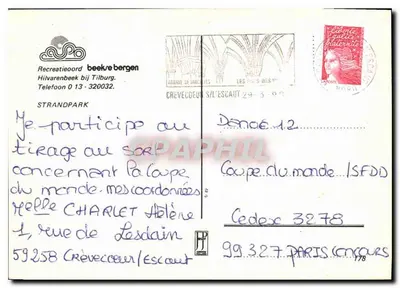 Recreatieoord beekse bergen
Hilvarenbeek bij Tilburg.
Telefoon 0 13 - 320032.
STRANDPARK
Je participe au
tirage au sort
concernant la Coupe
du monde. mes coordonnées:
Melle CHARLET Hélène
1, rue de Lesdain
59258 Crèvecoeur/Escaut
CREVECOEUR S/L'ESCAUT
Liberté
égalité
fraternité
DANOE 12
Coupe du monde /SFDD
Cedex 3278
99 327 PARIS CONCOURS
178